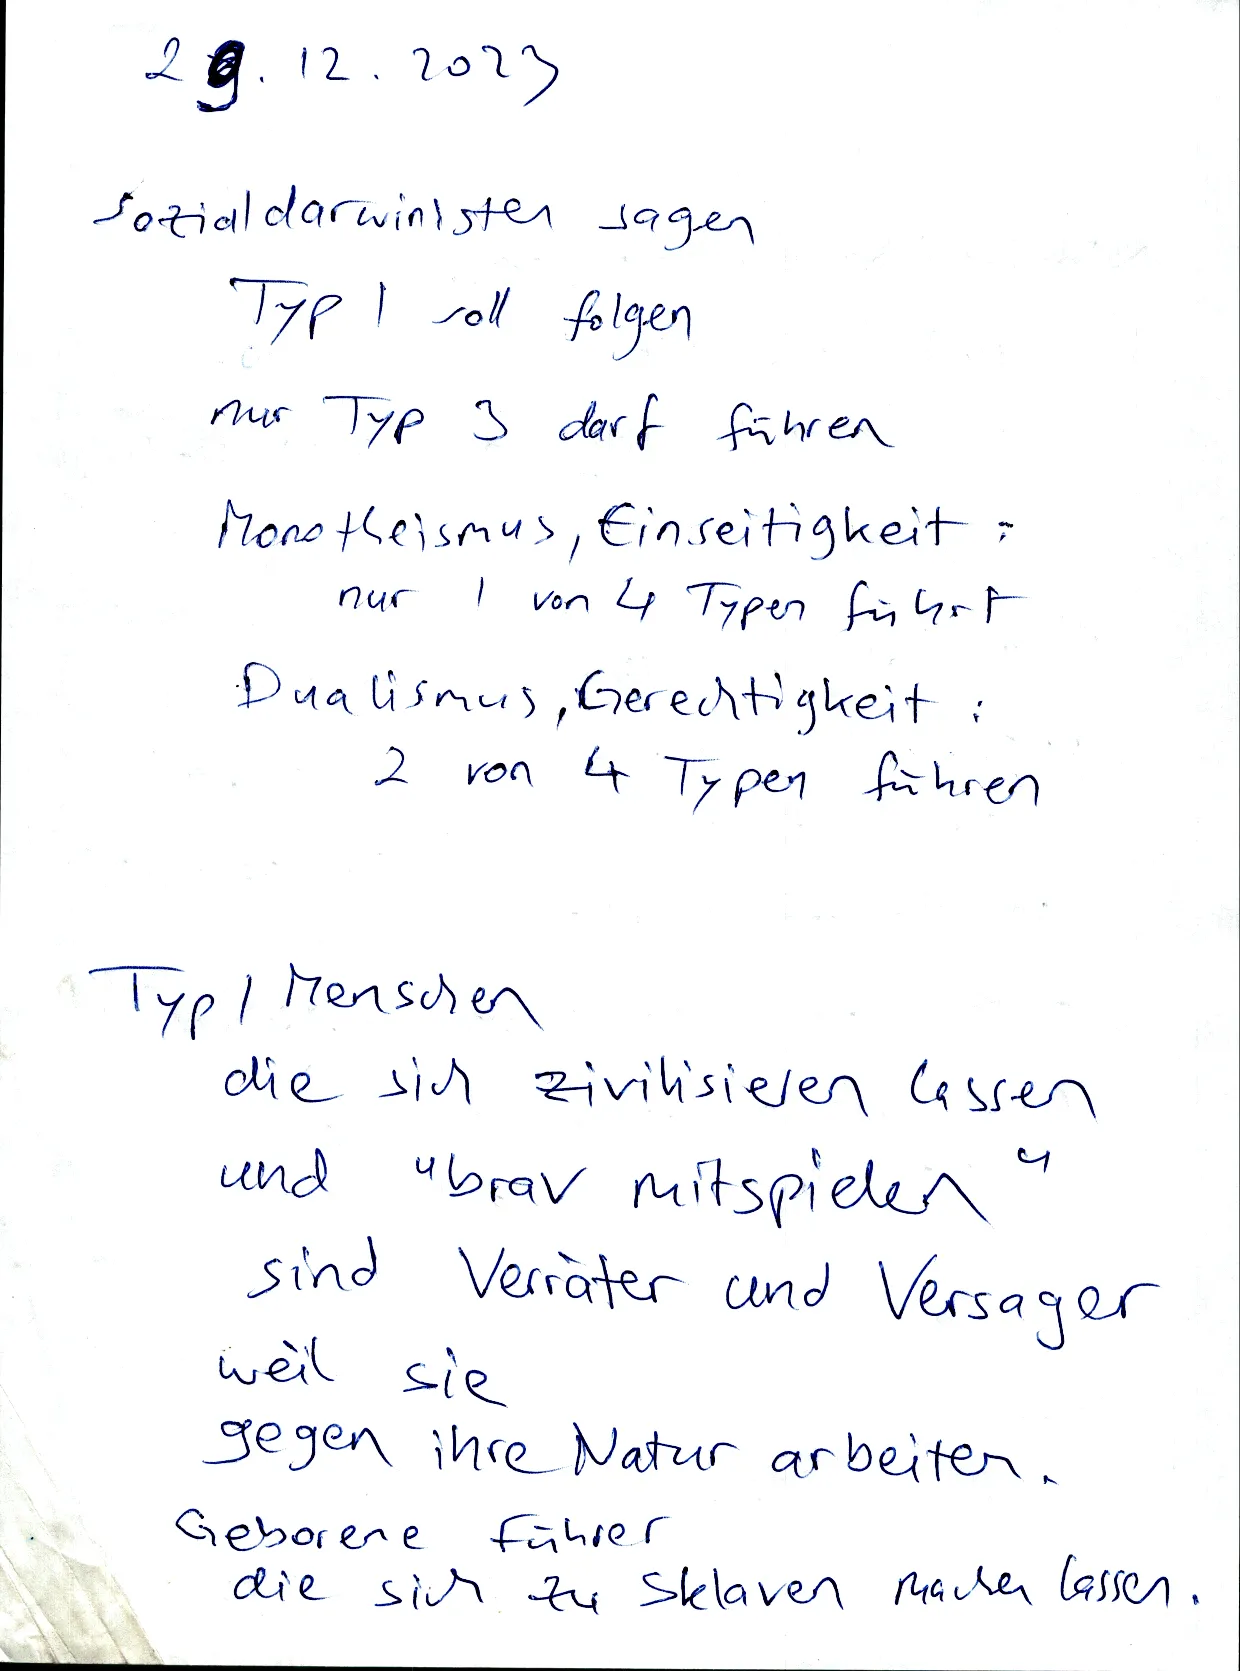 29.12.2023
Sozialdarwinisten sagen
Typ 1 soll folgen
nur Typ 3 darf führen
Monotheismus, Einseitigkeit:
nur 1 von 4 Typen führt
Dualismus, Gerechtigkeit:
2 von 4 Typen führen
Typ 1 Menschen
die sich zivilisieren lassen
und "brav mitspielen"
sind Verräter und Versager
weil sie
gegen ihre Natur arbeiten.
Geborene Führer
die sich zu Sklaven machen lassen.